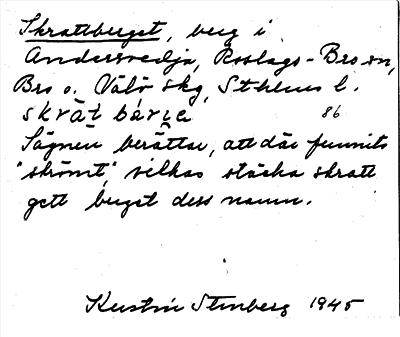 Skrattberget, berg i
Andersvedja, Roslags-Bro sn,
Bro o. Vätö skg, Sthlms l.
skrät bárje 86
Sägnen berättar, att där funnits
"skrömt," vilkas starka skratt
gett berget dess namn.
Kerstin Stenberg 1945